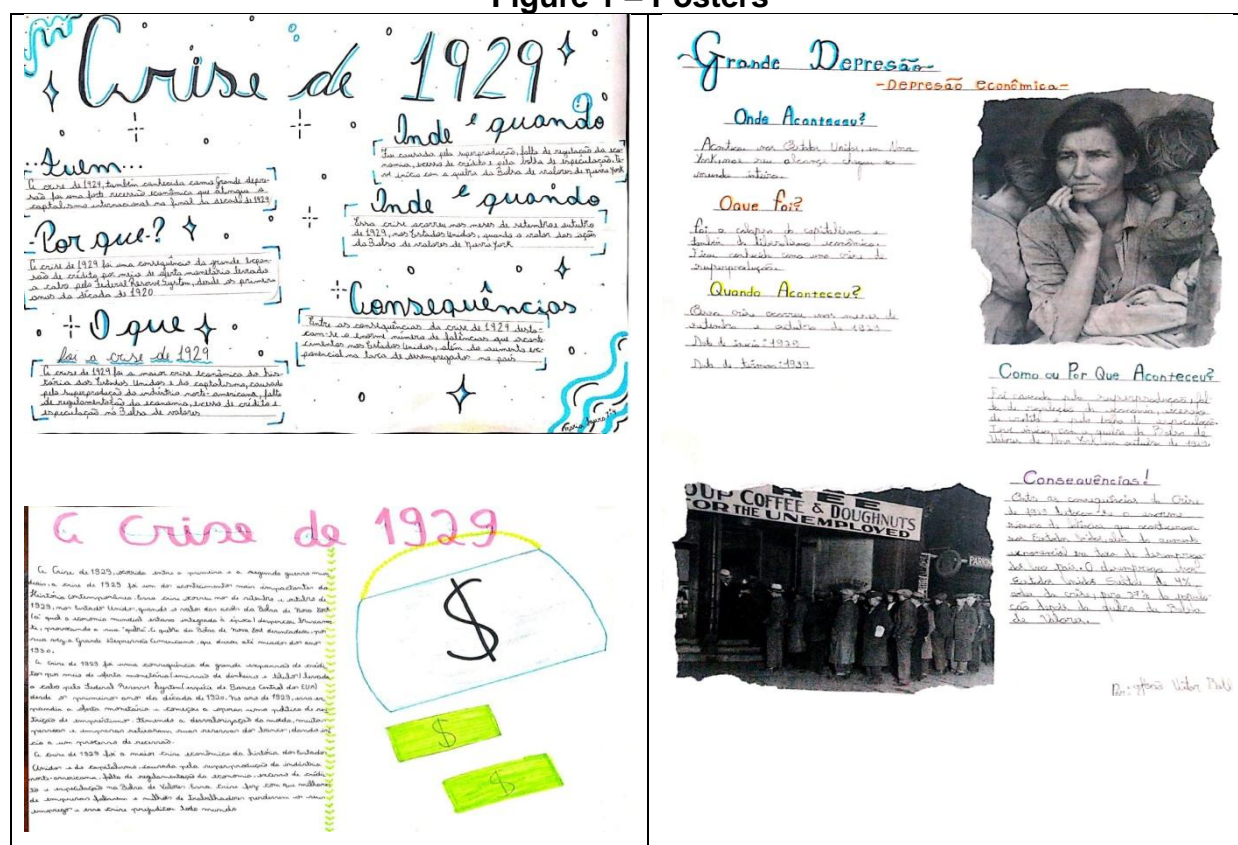 Figure 1 – Posters
Crise de 1929
Quem...
A crise de 1929, também conhecida como Grande depre-
são foi uma forte recessão econômica que atingiu o
capitalismo internacional no final da década de 1929
Por que-?
A crise de 1929 foi uma consequência da grande expan-
são de crédito por meio de oferta monetária levada
a cabo pelo Federal Reserve System, desde os primeiros
anos da década de 1920
O que
foi a crise de 1929
A crise de 1929 foi a maior crise econômica da his-
tória dos Estados Unidos e do capitalismo, causada
pela superprodução da indústria norte-americana, falta
de regulamentação da economia, excesso de crédito e
especulação na Bolsa de valores
Onde e quando
Foi causada pela superprodução, falta de regulação da eco-
nomia, excesso de crédito e pela bolha de especulação. te-
ve início com a quebra da Bolsa de valores de Nova York
Onde e quando
Essa crise ocorreu nos meses de setembro e outubro
de 1929, nos Estados Unidos, quando o valor das ações
da Bolsa de valores de Nova York
Consequências
Entre as consequências da crise de 1929 desta-
cam-se o enorme número de falências que
nos Estados Unidos, além do aumento ex-
ponencial na taxa de desempregados no país
A Crise de 1929
A Crise de 1929, ocorrida entre a primeira e a segunda guerra mun
dial, a crise de 1929 foi um dos acontecimentos mais impactantes da
História contemporânea. Essa crise ocorreu nos de setembro e outubro de
1929, nos Estados Unidos, quando o valor das ações da Bolsa de Nova York
(a qual a economia mundial estava integrada à época) despencou
provocando a sua "quebra". A quebra da Bolsa de Nova York
a Grande Depressão Americana, que durou até meados dos anos
1930.
A Crise de 1929 foi uma consequência da grande expansão de crédi
tos por meio de oferta monetária (emissão de dinheiro e títulos) levada
a cabo pelo Federal Reserve System (espécie de Banco Central dos EUA)
desde os primeiros anos da década de 1920. No ano de 1929,
a oferta monetária e começou a operar uma política de res
trição de empréstimos. a desvalorização da moeda, muitas
pessoas e empresas retiraram suas reservas dos bancos, dando iní
cio a um processo de recessão.
A crise de 1929 foi a maior crise econômica da história dos Estados
Unidos e do capitalismo, causada pela superprodução da indústria
norte-americana, falta de regulamentação da economia, excesso de crédi
to e especulação na Bolsa de Valores. Essa crise fez com que milhares
de empresas falissem e milhões de trabalhadores perdessem os seus
empregos e essa crise prejudicou todo mundo
$
$
$
Grande Depressão
-Depresão econômica-
Onde Aconteceu?
Aconteceu nos Estados Unidos, em Nova
York, mas seu alcance chegou ao
mundo inteiro.
Oque foi?
Foi o colapso do capitalismo e
também do liberalismo econômico.
Ficou conhecida como uma crise de
superprodução.
Quando Aconteceu?
Essa crise ocorreu nos meses de
setembro e outubro de 1929
Data de início: 1929
Data de término: 1939
Como ou Por Que Aconteceu?
Foi causada pela superprodução, fal
ta de regulação da economia, excesso
de crédito e pela bolha de especulação.
Teve início com a quebra da Bolsa de
Valores de Nova York em outubro de 1929.
OUP COFFEE & DOUGHNUTS
FREE
FOR THE UNEMPLOYED
Consequências!
as consequências da Crise
de 1929 o enorme
número de falências que aconteceram
nos Estados Unidos, além do aumento
exponencial na taxa de desemprega
dos no país. O desemprego nos
Estados Unidos de 4%
antes da crise, para 27% da popula
ção depois da quebra da Bolsa
de Valores.
Por: Victor